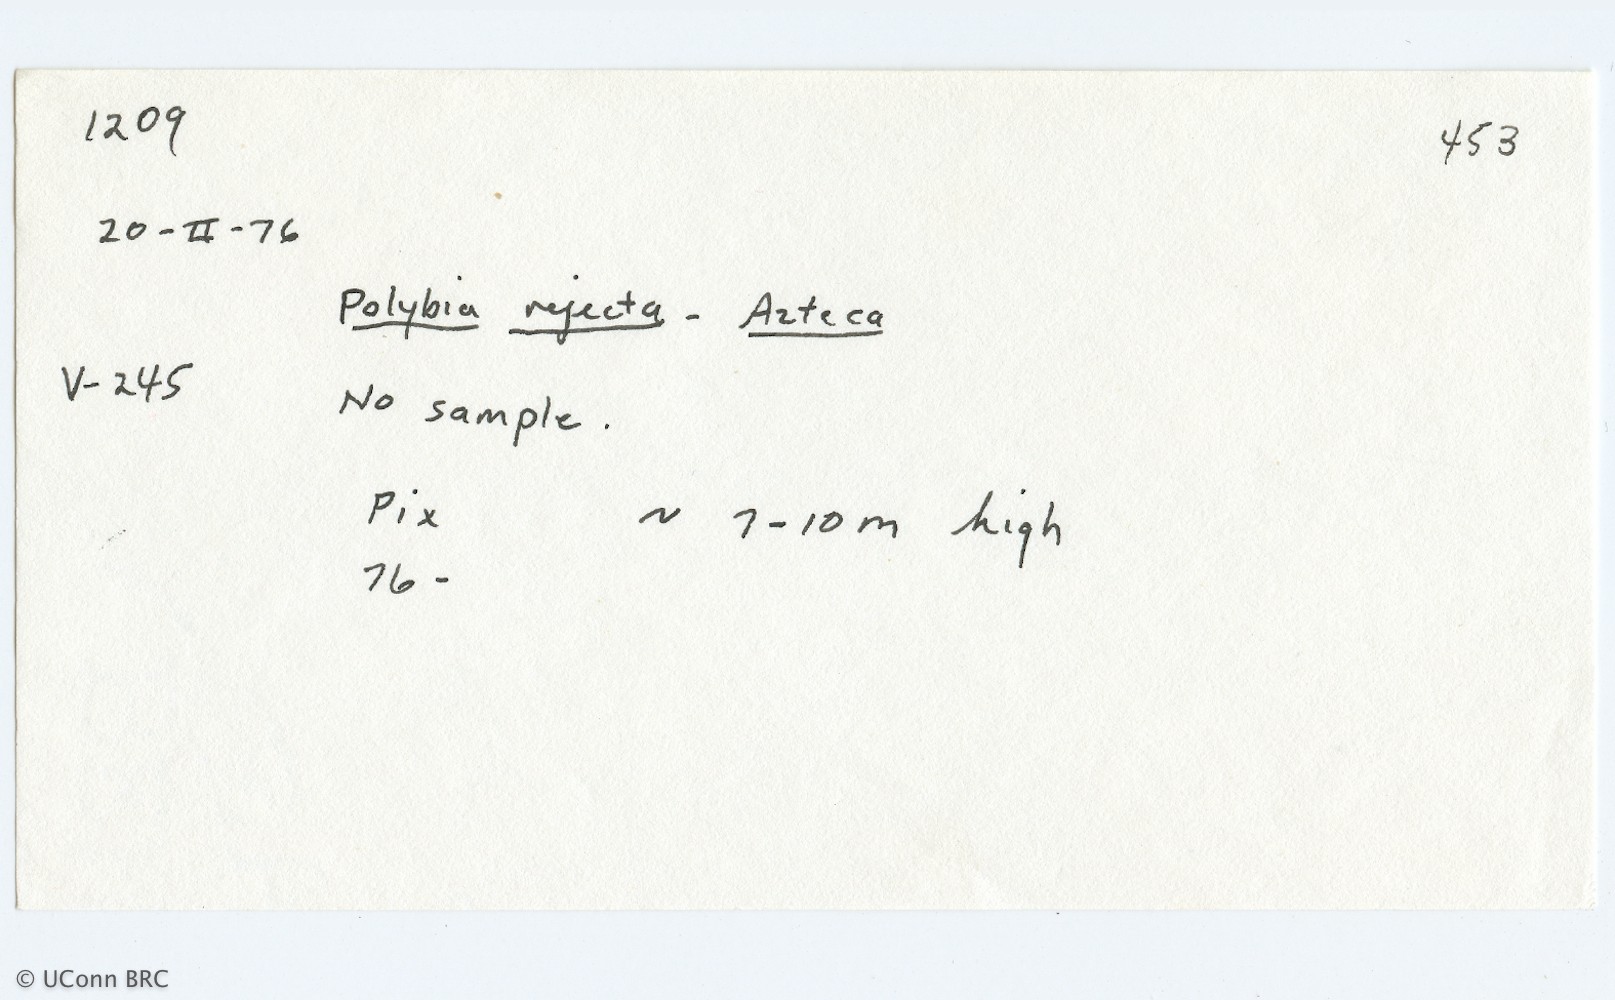 1209 453
20-II-76
Polybia rejecta - Azteca
V-245
No sample.
Pix ~ 7-10m high
76-
© UConn BRC